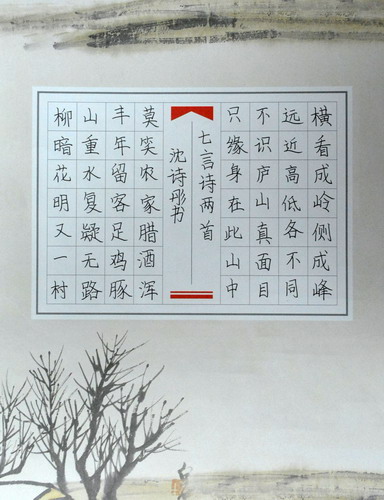 横看成岭侧成峰
远近高低各不同
不识庐山真面目
只缘身在此山中
七言诗两首
沈诗彤书
莫笑农家腊酒浑
丰年留客足鸡豚
山重水复疑无路
柳暗花明又一村